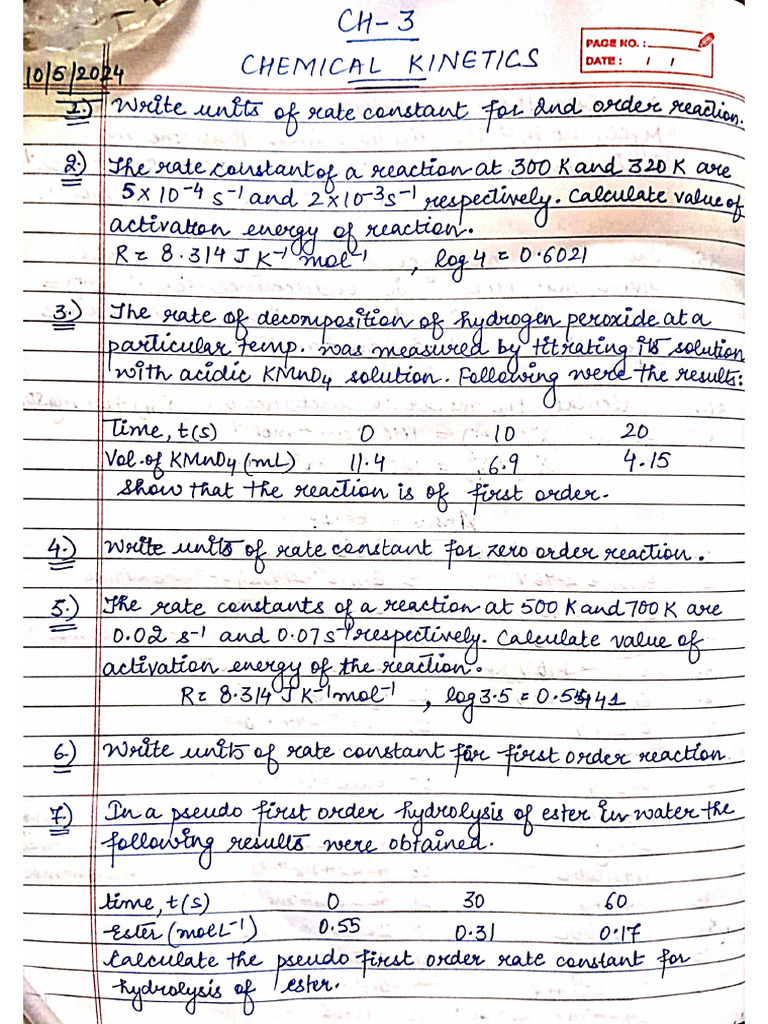 CH-3
CHEMICAL KINETICS
PAGE NO.:
DATE: / /
10/5/2024
1.) Write units of rate constant for 2nd order reaction.
2.) The rate constant of a reaction at 300 K and 320 K are
5×10⁻⁴ s⁻¹ and 2×10⁻³s⁻¹ respectively. Calculate value of
activation energy of reaction.
R = 8.314 J K⁻¹ mol⁻¹ , log 4 = 0.6021
3.) The rate of decomposition of hydrogen peroxide at a
particular temp. was measured by titrating its solution
with acidic KMnO₄ solution. Following were the results:
Time, t(s) 0 10 20
Vol. of KMnO₄ (mL) 11.4 6.9 4.15
Show that the reaction is of first order.
4.) Write units of rate constant for zero order reaction.
5.) The rate constants of a reaction at 500 K and 700 K are
0.02 s⁻¹ and 0.07 s⁻¹ respectively. Calculate value of
activation energy of the reaction.
R = 8.314 J K⁻¹ mol⁻¹ , log 3.5 = 0.5441
6.) Write units of rate constant for first order reaction.
7.) In a pseudo first order hydrolysis of ester in water the
following results were obtained.
time, t(s) 0 30 60
Ester (mol L⁻¹) 0.55 0.31 0.17
Calculate the pseudo first order rate constant for
hydrolysis of ester.